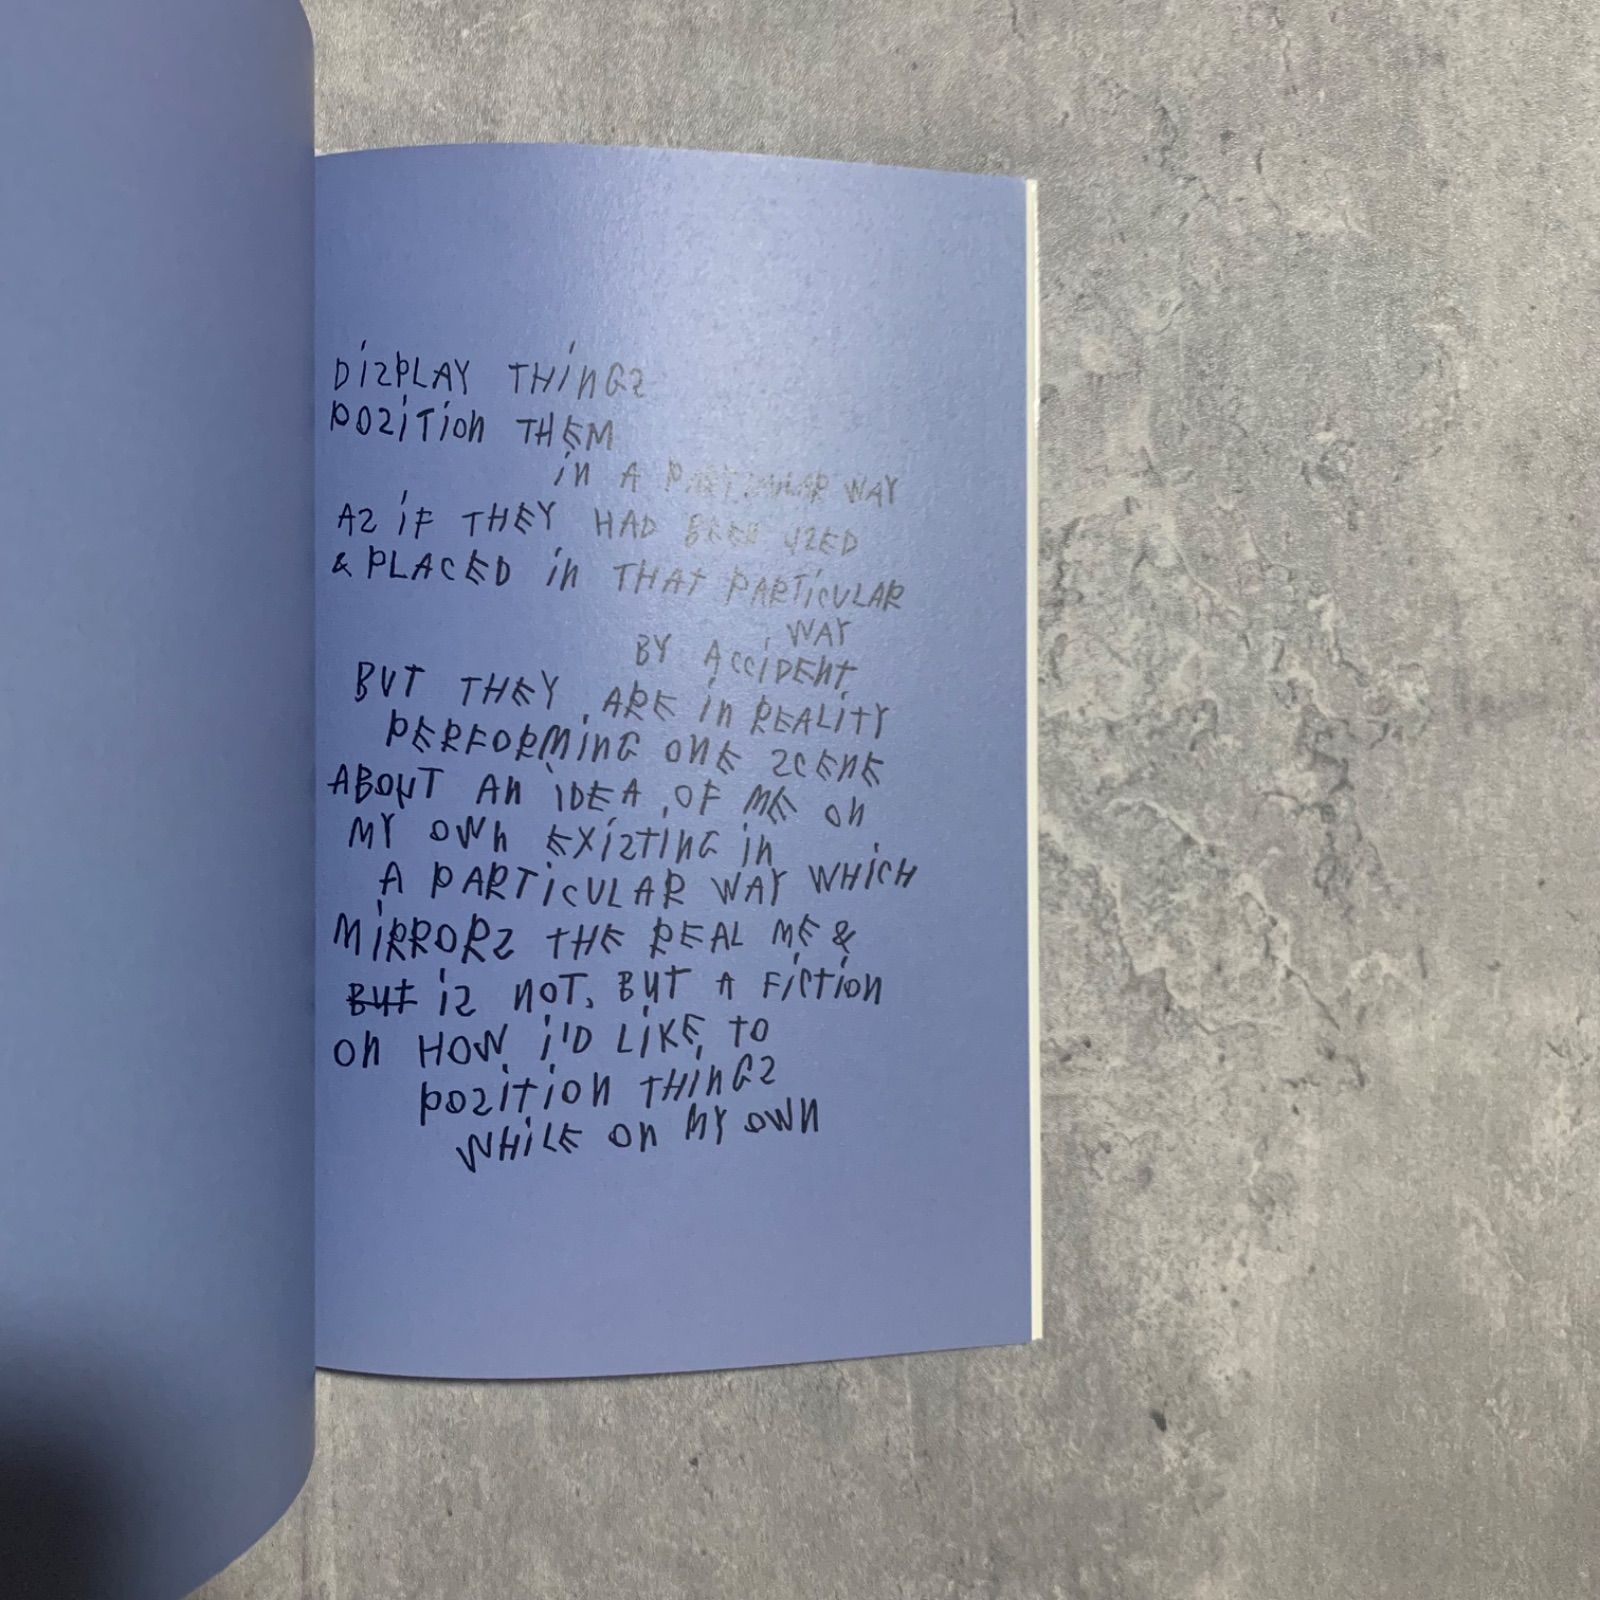 DiZPLAY THiNGZ
POZiTiON THEM
iN A PARTiCULAR WAY
AZ iF THEY HAD BEEN UZED
& PLACED iN THAT PARTiCULAR
WAY
BY ACCiDENT
BUT THEY ARE iN REALiTY
PERFORMiNG ONE ZCENE
ABOUT AN iDEA OF ME ON
MY OWN EXiZTiNG iN
A PARTiCULAR WAY WHiCH
MiRRORZ THE REAL ME &
BUT iZ NOT, BUT A FiCTiON
ON HOW i'D LiKE TO
POZiTiON THiNGZ
WHiLE ON MY OWN